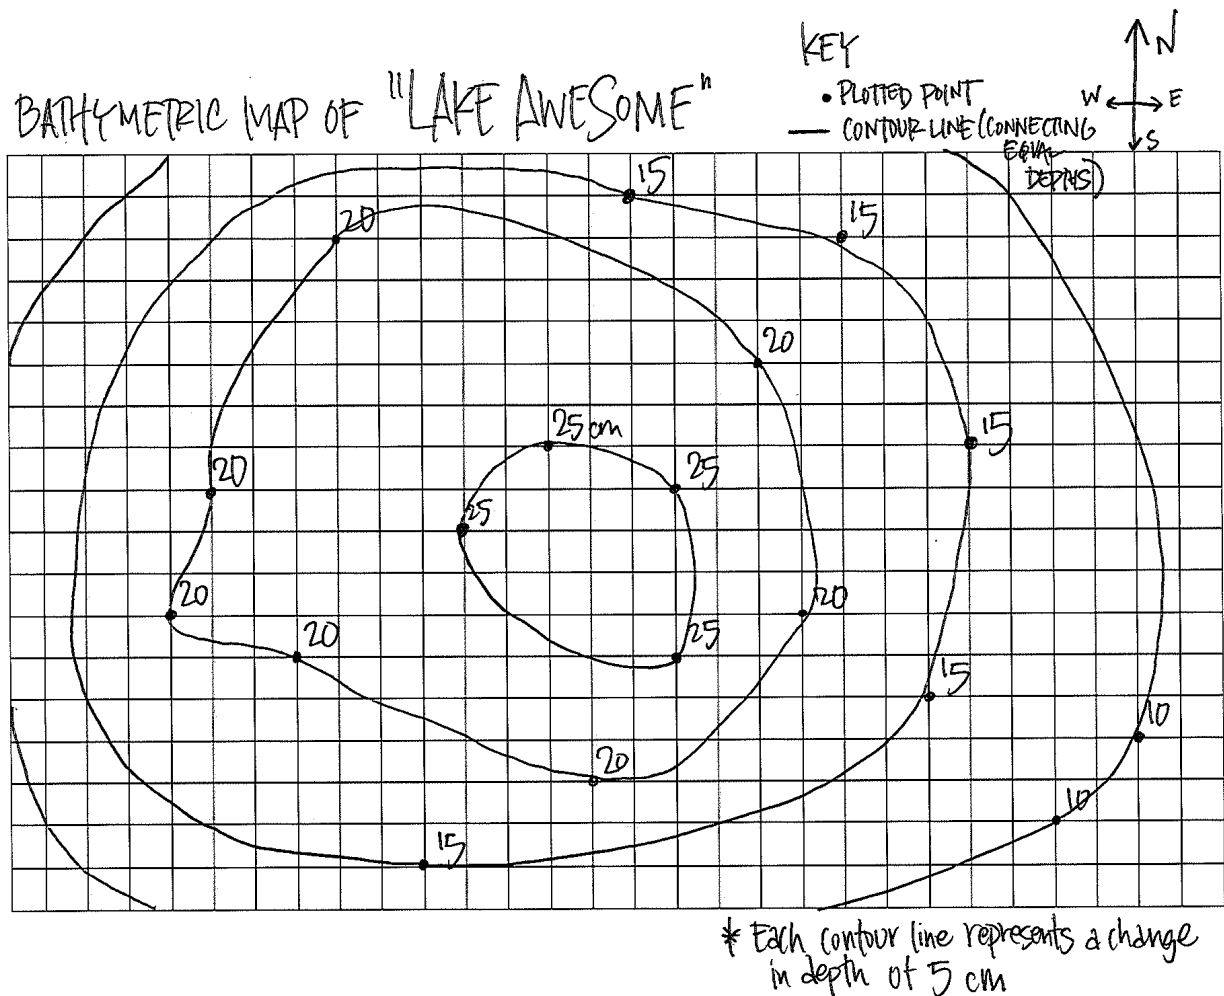 BATHYMETRIC MAP OF "LAKE AWESOME"
KEY
• PLOTTED POINT
— CONTOUR LINE (CONNECTING
EQUAL
DEPTHS)
N
W E
S
15
20
15
20
15
25 cm
20
25
25
20
20
20
25
15
10
20
10
15
* Each contour line represents a change
in depth of 5 cm